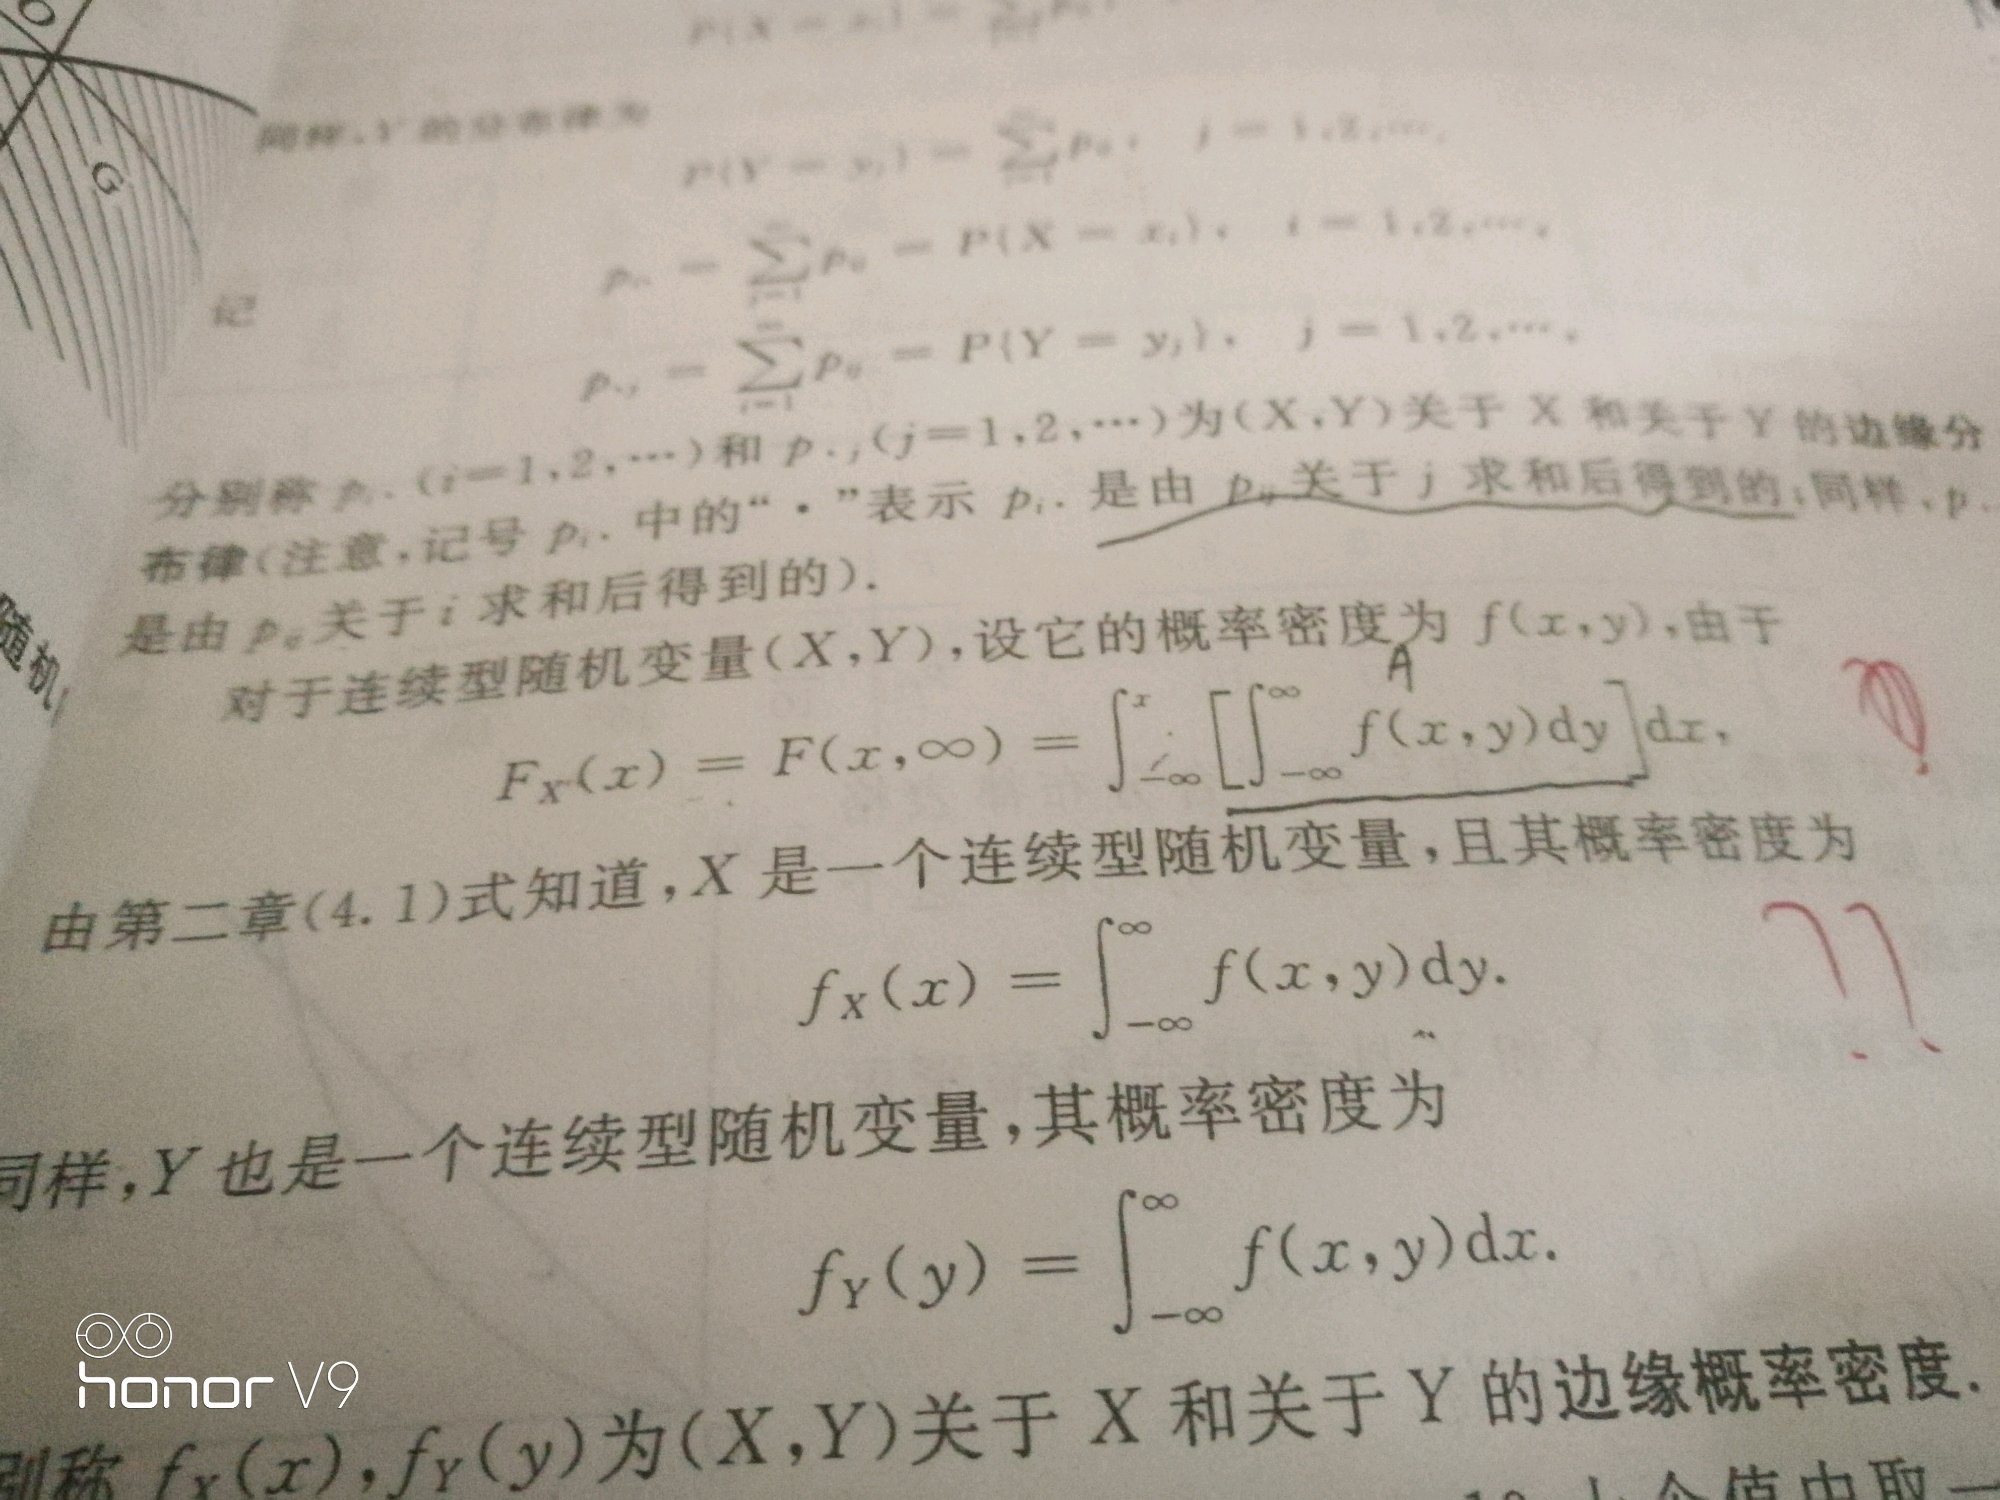 O
G
同样,Y 的分布律为
P{Y = y_j} = \sum_{i=1}^{\infty} p_{ij}, j = 1,2,⋯.
记
p_{i·} = \sum_{j=1}^{\infty} p_{ij} = P{X = x_i}, i = 1,2,⋯,
p_{·j} = \sum_{i=1}^{\infty} p_{ij} = P{Y = y_j}, j = 1,2,⋯,
分别称 p_{i·} (i=1,2,⋯)和 p_{·j} (j=1,2,⋯)为(X,Y)关于 X 和关于 Y 的边缘分
布律(注意,记号 p_{i·} 中的“·”表示 p_{i·} 是由 p_{ij} 关于 j 求和后得到的;同样,p_·
是由 p_{ij} 关于 i 求和后得到的).
随机
对于连续型随机变量(X,Y),设它的概率密度为 f(x,y),由于
A
F_X(x) = F(x,∞) = \int_{-∞}^{x} [\int_{-∞}^{∞} f(x,y)dy]dx,
由第二章(4.1)式知道,X 是一个连续型随机变量,且其概率密度为
f_X(x) = \int_{-∞}^{∞} f(x,y)dy.
同样,Y 也是一个连续型随机变量,其概率密度为
f_Y(y) = \int_{-∞}^{∞} f(x,y)dx.
别称 f_X(x),f_Y(y)为(X,Y)关于 X 和关于 Y 的边缘概率密度.
个值中取一
honor V9